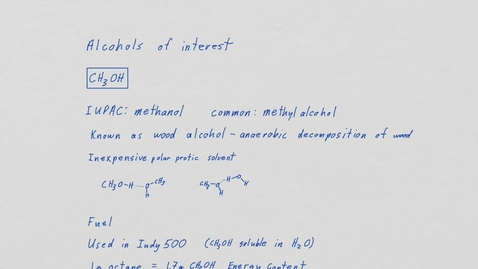 Alcohols of interest
CH3OH
IUPAC: methanol common: methyl alcohol
Known as wood alcohol - anaerobic decomposition of wood
Inexpensive polar protic solvent
CH3O-H····O-CH3 H CH3-O····H-O H H
Fuel
Used in Indy 500 (CH3OH soluble in H2O)
1g octane = 1.7g CH3OH Energy Content